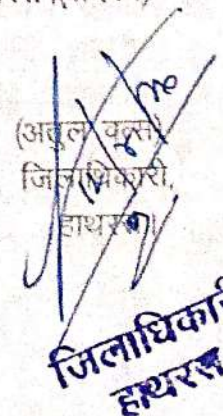 (अतुल वत्स)
जिलाधिकारी,
हाथरस।
जिलाधिकारी
हाथरस